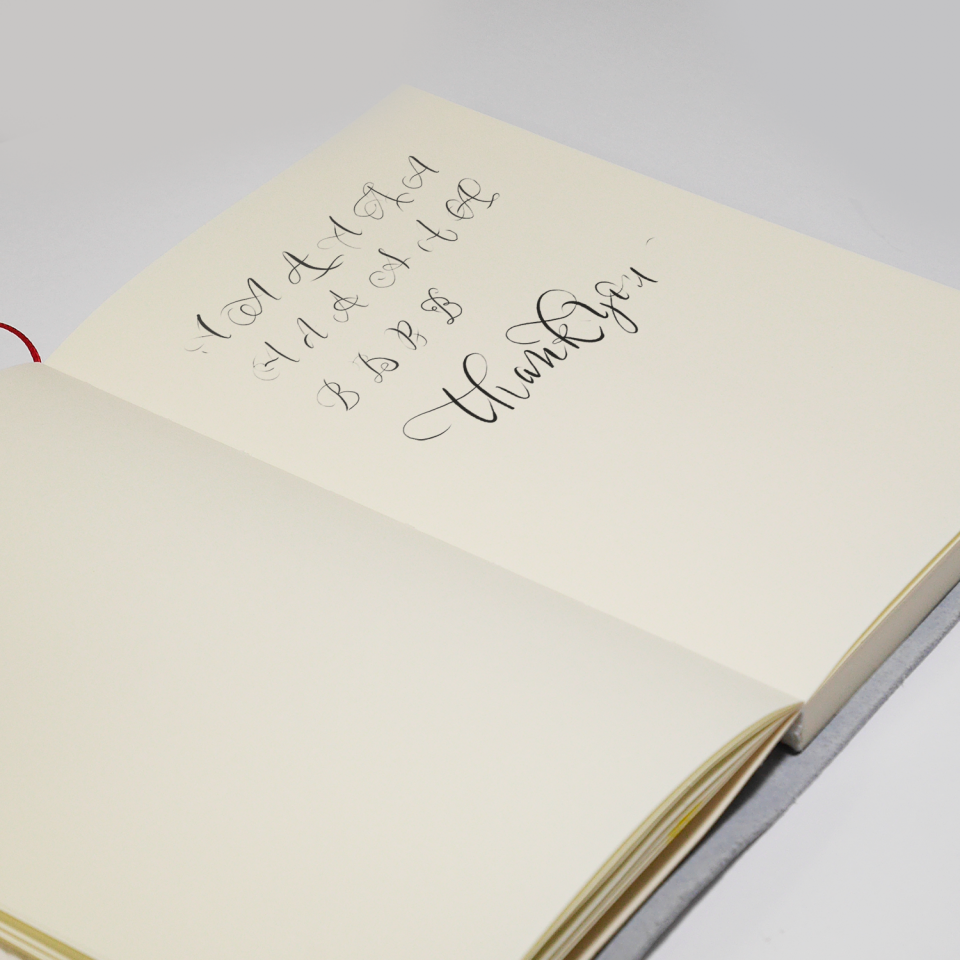 A A A A A A
A A A A A A
B B B B
thank you